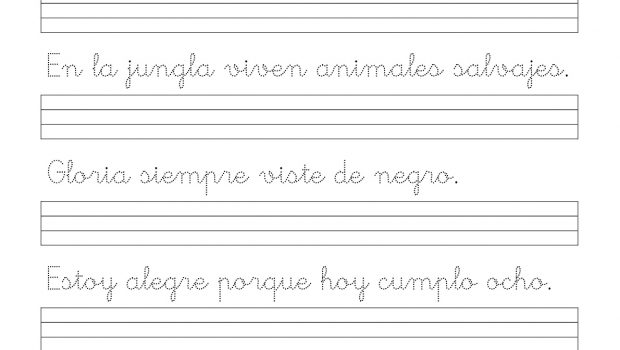 En la jungla viven animales salvajes.
Gloria siempre viste de negro.
Estoy alegre porque hoy cumplo ocho.